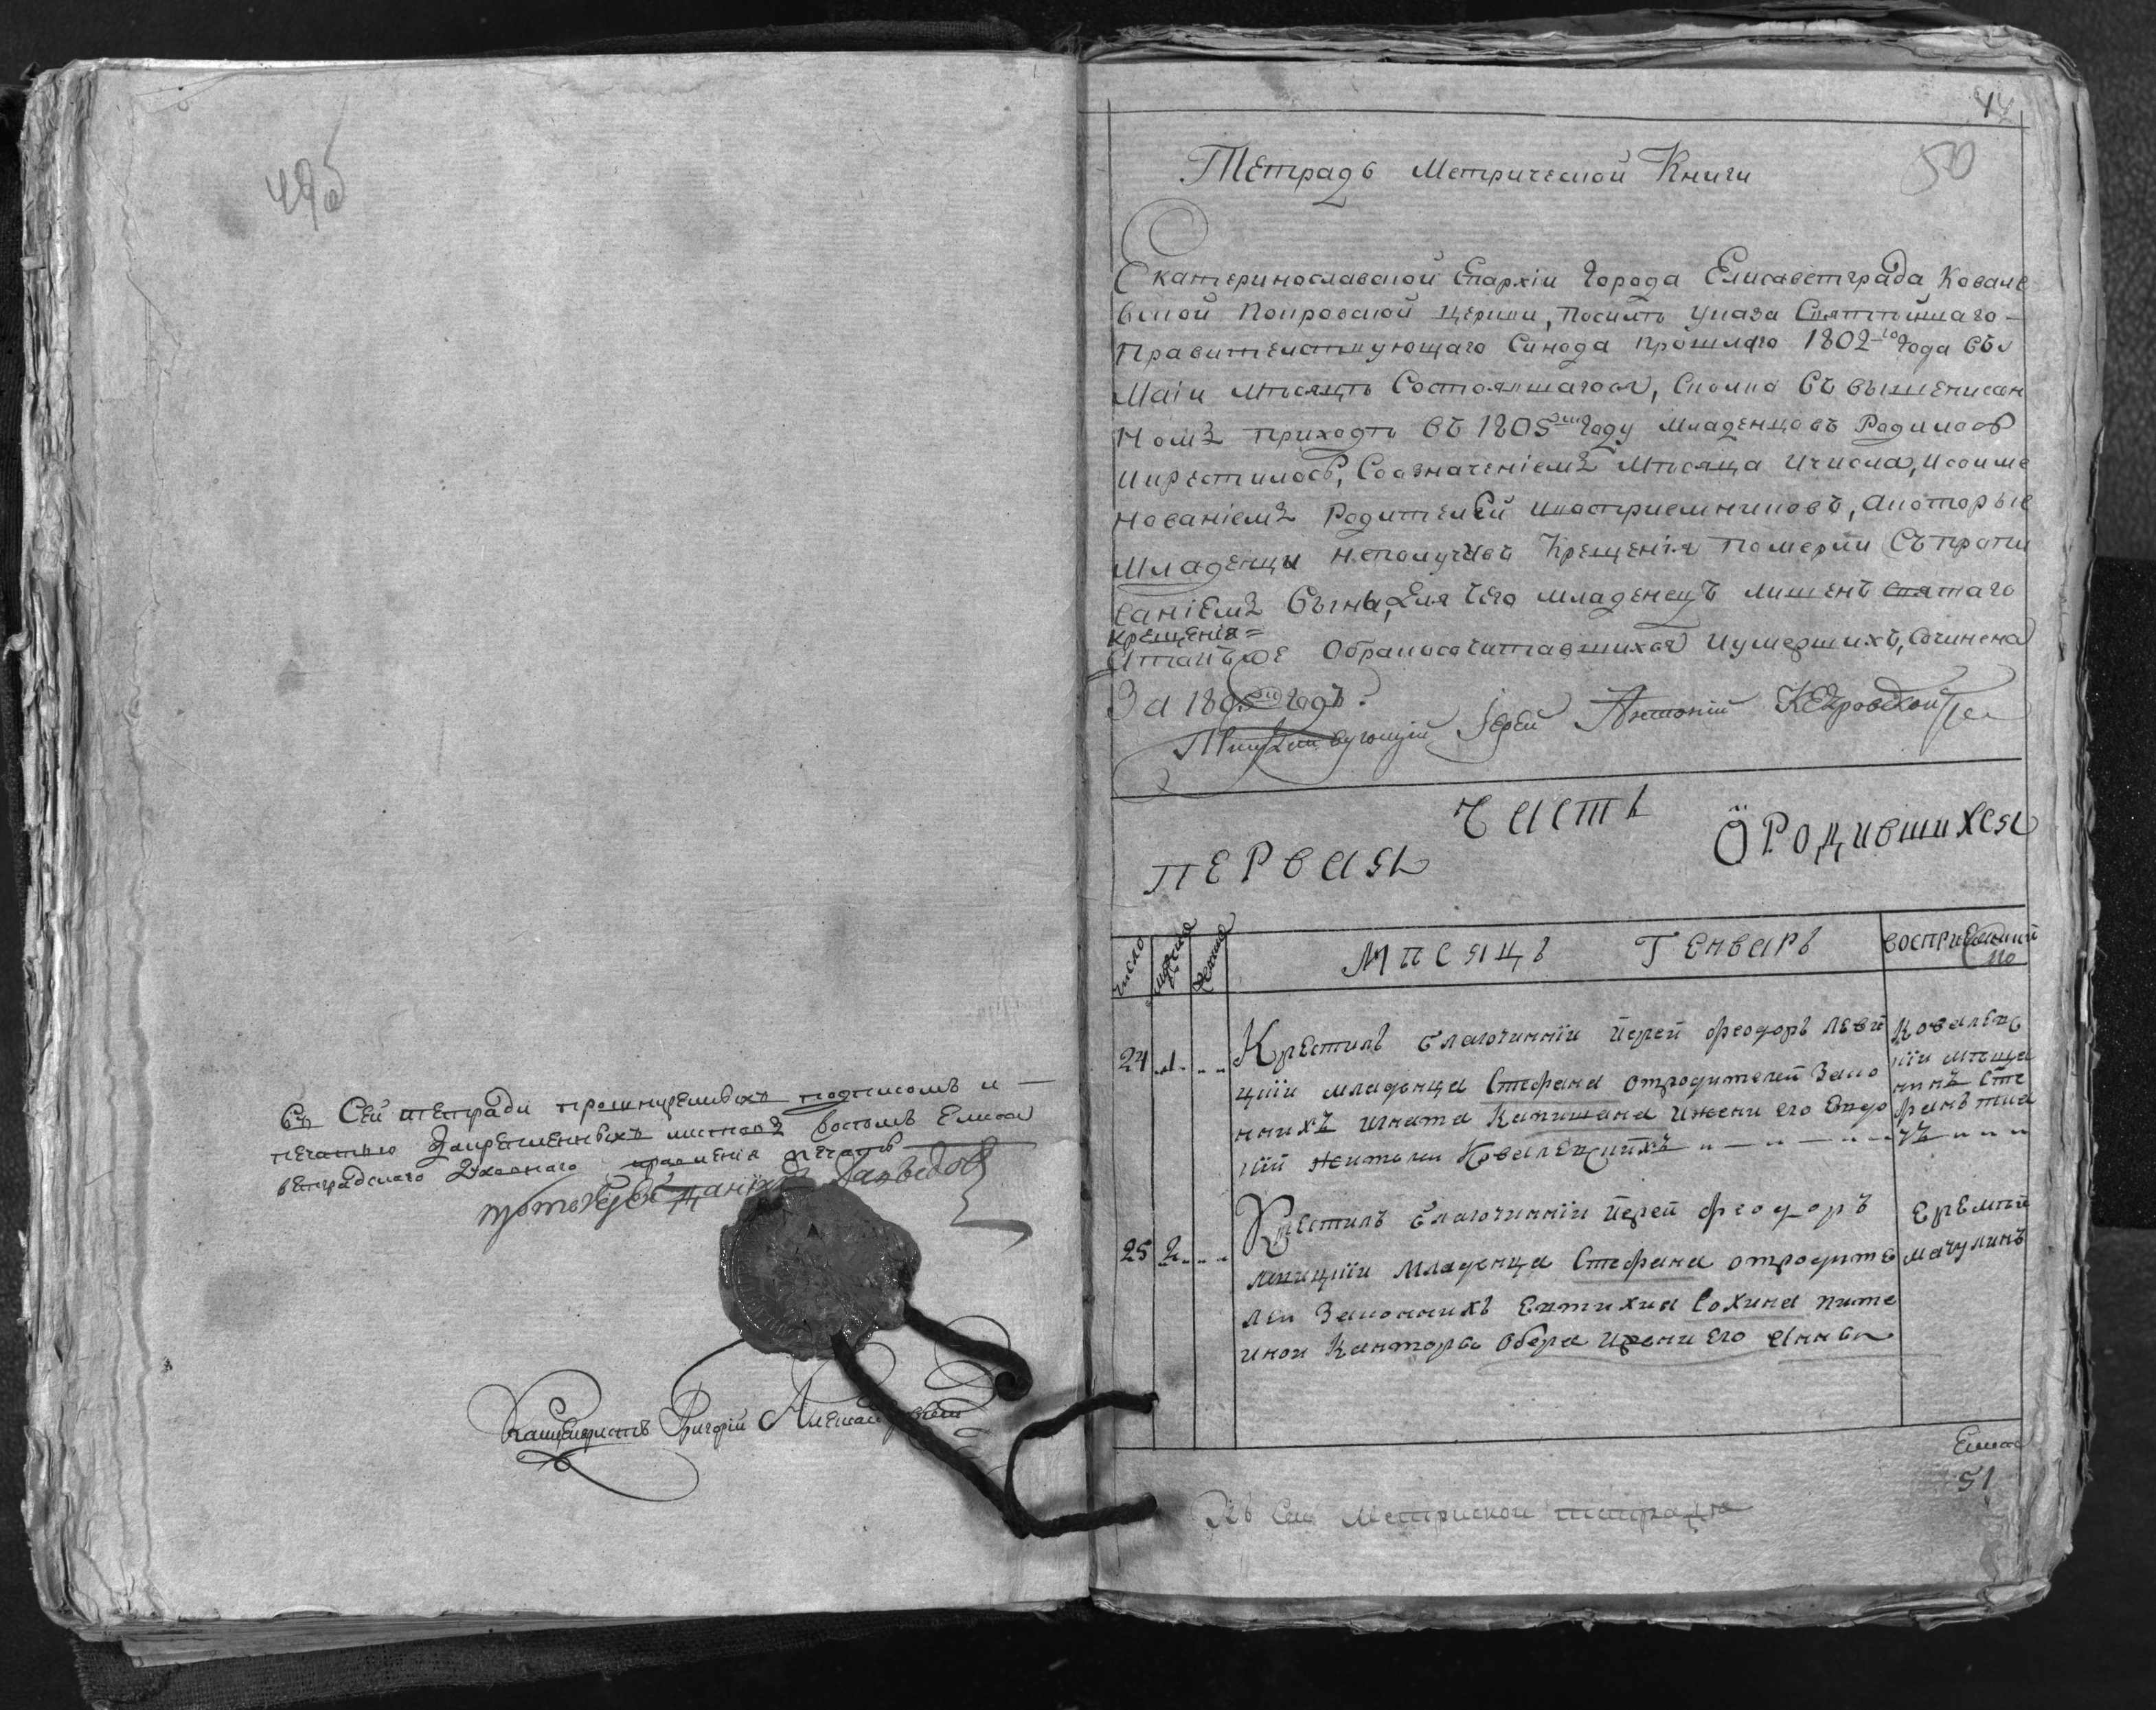 49об
Въ Сей тетради прошнуренныхъ подписомъ и —
печатью Закрепленныхъ листовъ Елиса
ветградскаго Духовнаго правленія печать
протоіерей
Канцеляристъ Григорій
44
50
Тетрадь Метрической Книги
Екатеринославской Епархіи Города Елисаветграда Ковале
вской Покровской Церкви, посилѣ указа Святѣйшаго —
Правителствующаго Синода прошлаго 1802-го Года въ
Маіи мѣсяцѣ Состоявшагося, Сколко въ вышеписан
Номъ приходѣ въ 1805м Году младенцовъ Родилось
икрестилось, Соозначеніемъ Мѣсяца ичисла, исоиме
нованіемъ Родителей ивоспріемниковъ, акоторые
Младенцы неполучивъ Крещенія померли Съпропи
саніемъ Вины, для чего младенецъ лишенъ святаго
крещенія =
Итакъже Обракосочитавшихся иумершихъ, Сочинена
За 1805й Годъ.
Іерей Антоній
ЧАСТЬ
ПЕРВАЯ
О РОДИВШИХСЯ
число
мужеска
женска
МѢСЯЦЪ ГЕНВАРЬ
воспріемники
24 1
Крестилъ благочинній Іерей феодоръ Леви
цкій младенца Стефана отродителей Зако
нныхъ игната Капишана ижени его Евдо
кій жители Ковалевскихъ
Ковалевс
кій мѣща
нинъ Сте
фанъ тка
чъ
25 2
Крестилъ благочинній Іерей феодоръ
левицкій Младенца Стефана отродите
лей Законнихъ Евтихия Сохина пите
йной Канторы обера ижени его Анны
Еремѣй
мачулинъ
Елиса
51
Къ Сей Метриской тетрады